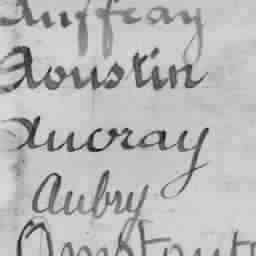 Auffray
Aoustin
Aucray
Aubry